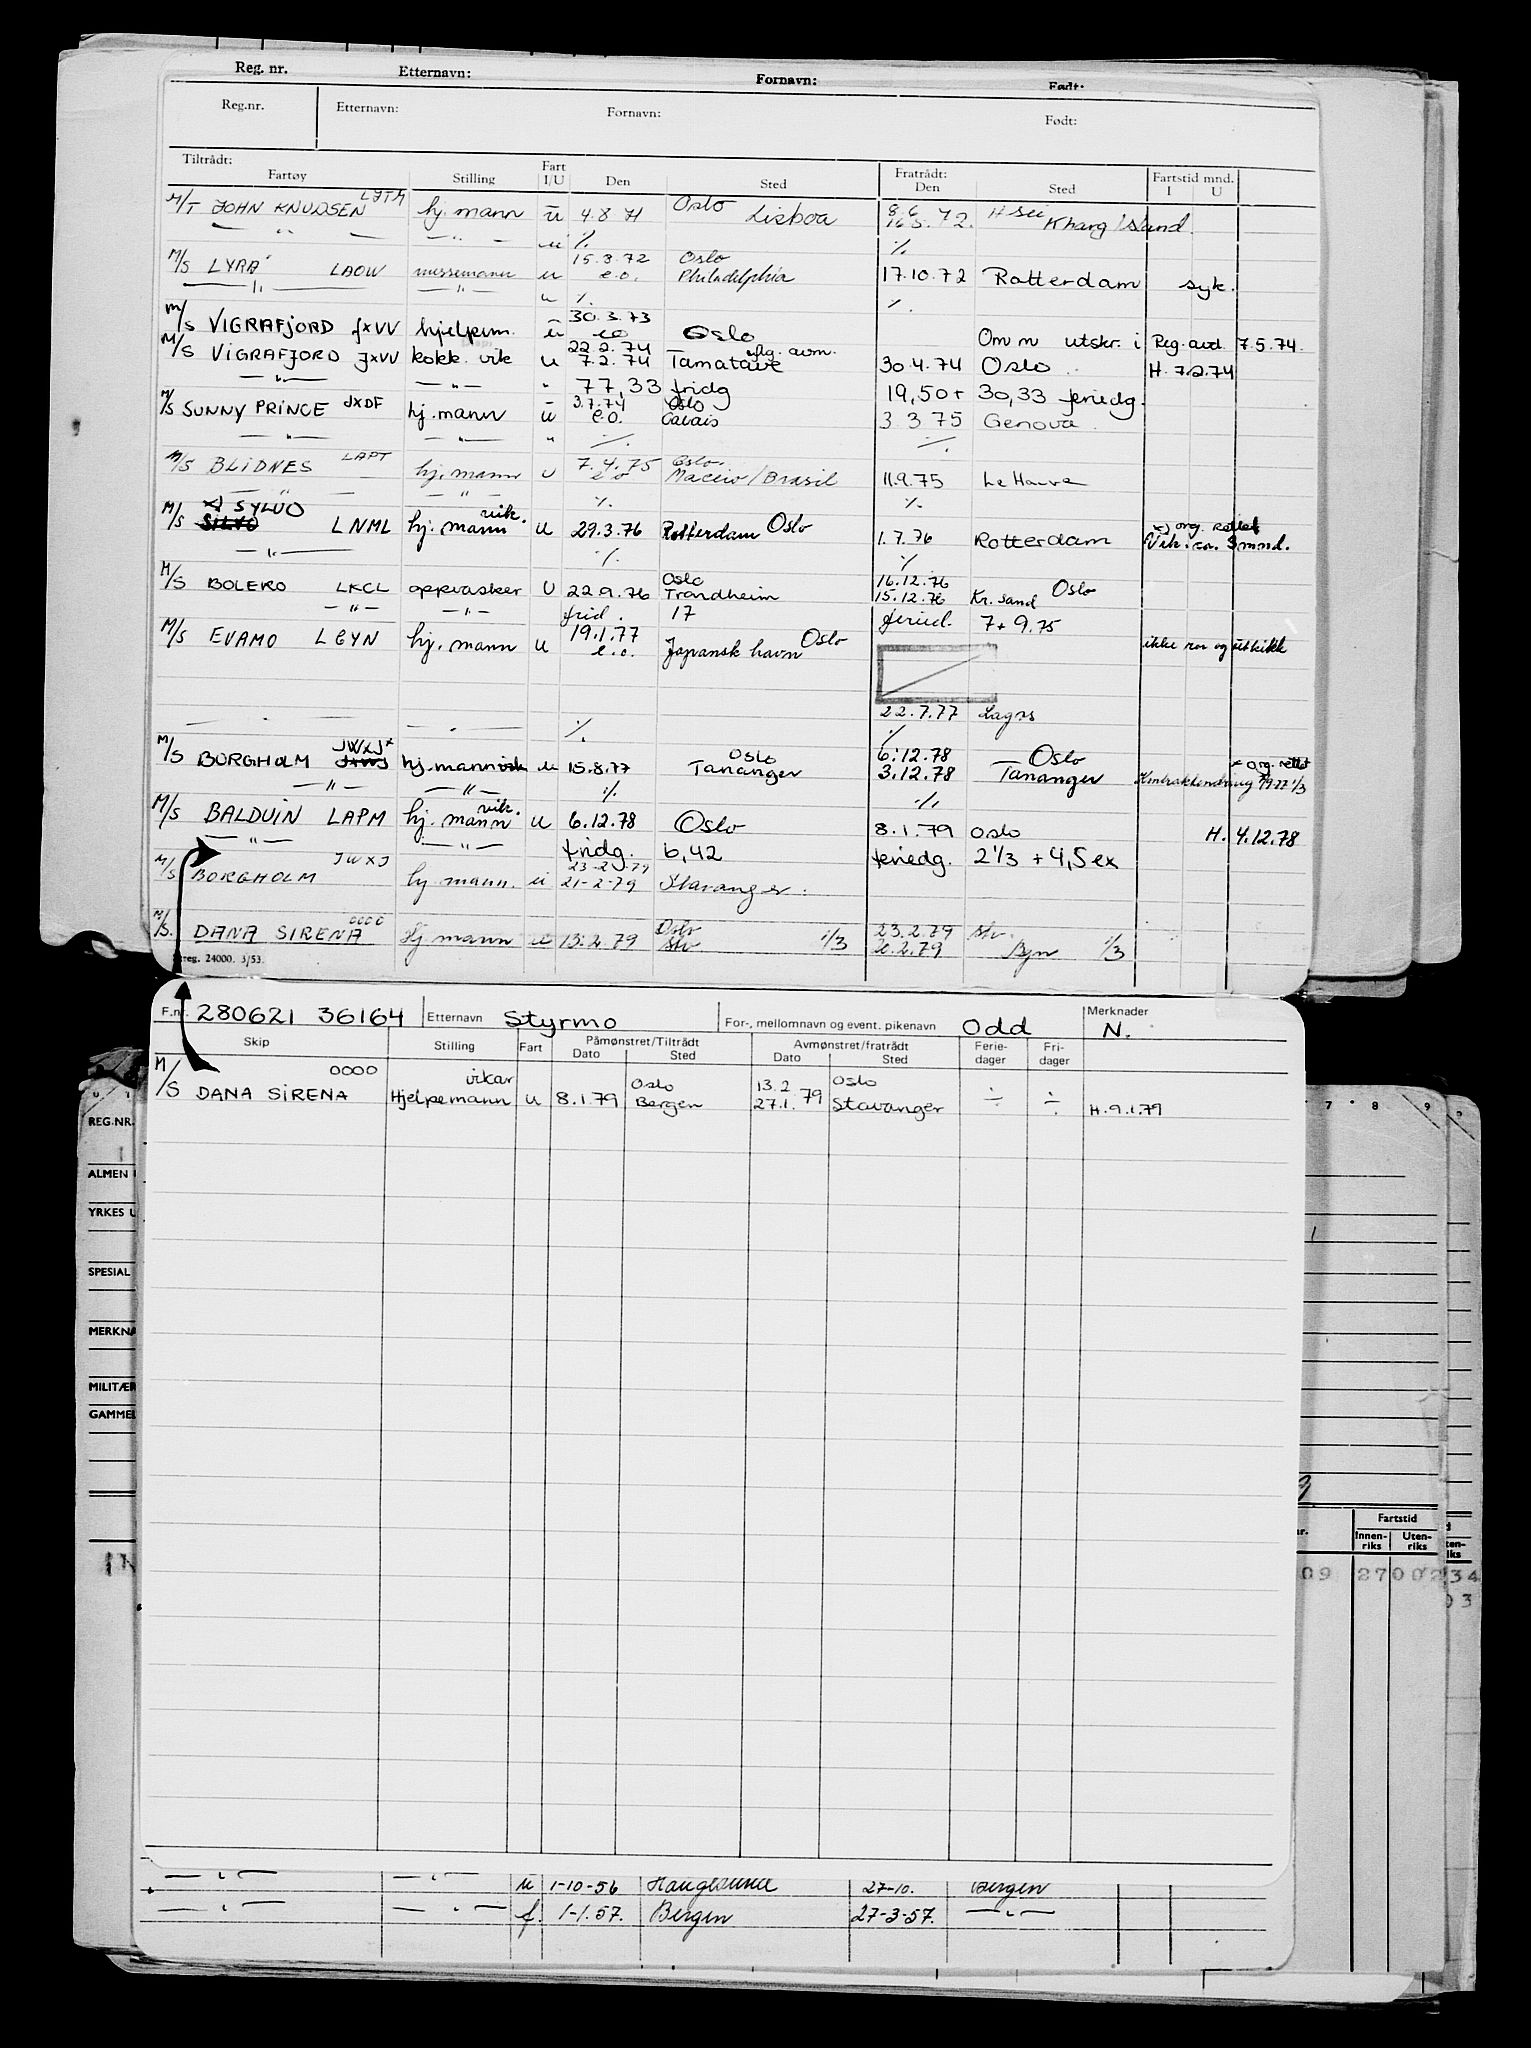 Reg. nr. Etternavn: Fornavn: Født:
Reg.nr. Etternavn: Fornavn: Født:
Tiltrådt: Fart Fratrådt: Fartstid mnd.
Fartøy Stilling I/U Den Sted Den Sted I U
LJTM Oslo
M/T JOHN KNUDSEN hj. mann u 4.8 71 Lisboa Kharg Island
— " — — " — u ٪ ٪
15.3.72 Oslo
M/S LYRA LAOW messemann u e.o. Philadelphia 17.10.72 Rotterdam syk.
— " — — " — u ٪ ٪
30.3.73
M/S VIGRAFJORD JXVV hjelpem. u eo Oslo Om m utskr. i Reg. avd. 7.5.74.
22.2.74 avm.
M/S VIGRAFJORD JXVV kokk. vik u 7.2.74 Tamatave 30.4.74 Oslo H. 7.2.74
— " — — " — " 77,33 fridg 19,50 + 30,33 feriedg.
3.7.74 Oslo
M/S SUNNY PRINCE JXDF hj. mann u e.o. Calais 3.3.75 Genova
— " — — " — " ٪ ٪
7.4.75 Oslo
M/S BLIDNES LAPT hj. mann u e o Maceio/Brasil 11.9.75 Le Havre
— " — — " — ٪ ٪
x) SYLVO vik. x) org. rettet
M/S SILVO LNML hj. mann u 29.3.76 Rotterdam Oslo 1.7.76 Rotterdam Vik. ca. 3 mnd.
— " — ٪ ٪
Oslo 16.12.76
M/S BOLERO LKCL oppvasker U 22.9.76 Trondheim 15.12.76 Kr. sand Oslo
— " — — " — frid. 17 feried. 7 + 9.75
19.1.77
M/S EVAMO LEYN hj. mann u e.o. Japansk havn Oslo ikke ror og utkikk
22.7.77 Lagos
— " — — " — ٪ ٪
JWXJx Oslo 6.12.78 Oslo x org. rettet
M/S BORGHOLM hj. mann vik u 15.8.77 Tananger 3.12.78 Tananger
— " — — " — ٪ ٪
M/S BALDUIN LAPM hj. mann vik. u 6.12.78 Oslo 8.1.79 Oslo H. 4.12.78
— " — — " — fridg. 6,42 feriedg. 2 1/3 + 4,5 ex
M/S BORGHOLM JWXJ hj. mann. u 21-2-79 Stavanger.
OOOO Oslo 23.2.79 Stv.
M/S. DANA SIRENA Hj mann u 13.2.79 Stv. 1/3 2.2.79 Bjn 1/3
reg. 24000. 3/53.
F.nr. 280621 36164 Etternavn Styrmo For-, mellomnavn og event. pikenavn Odd Merknader N.
Skip Stilling Fart Påmønstret/Tiltrådt Avmønstret/fratrådt Ferie- Fri-
Dato Sted Dato Sted dager dager
OOOO vikar Oslo 13.2 Oslo
M/S DANA SIRENA Hjelpemann u 8.1.79 Bergen 27.1.79 Stavanger ÷ ÷ H. 9.1.79
REG.NR.
ALMEN
YRKES U
SPESIAL
MERKNA
MILITÆR
GAMMEL
7 8 9 9
Fartstid
Innen-riks Uten-riks
09 2700234
03
— " — — " — u 1-10-56 Haugesund 27-10. Bergen
— " — — " — f. 1-1.57. Bergen 27-3-57. — " —